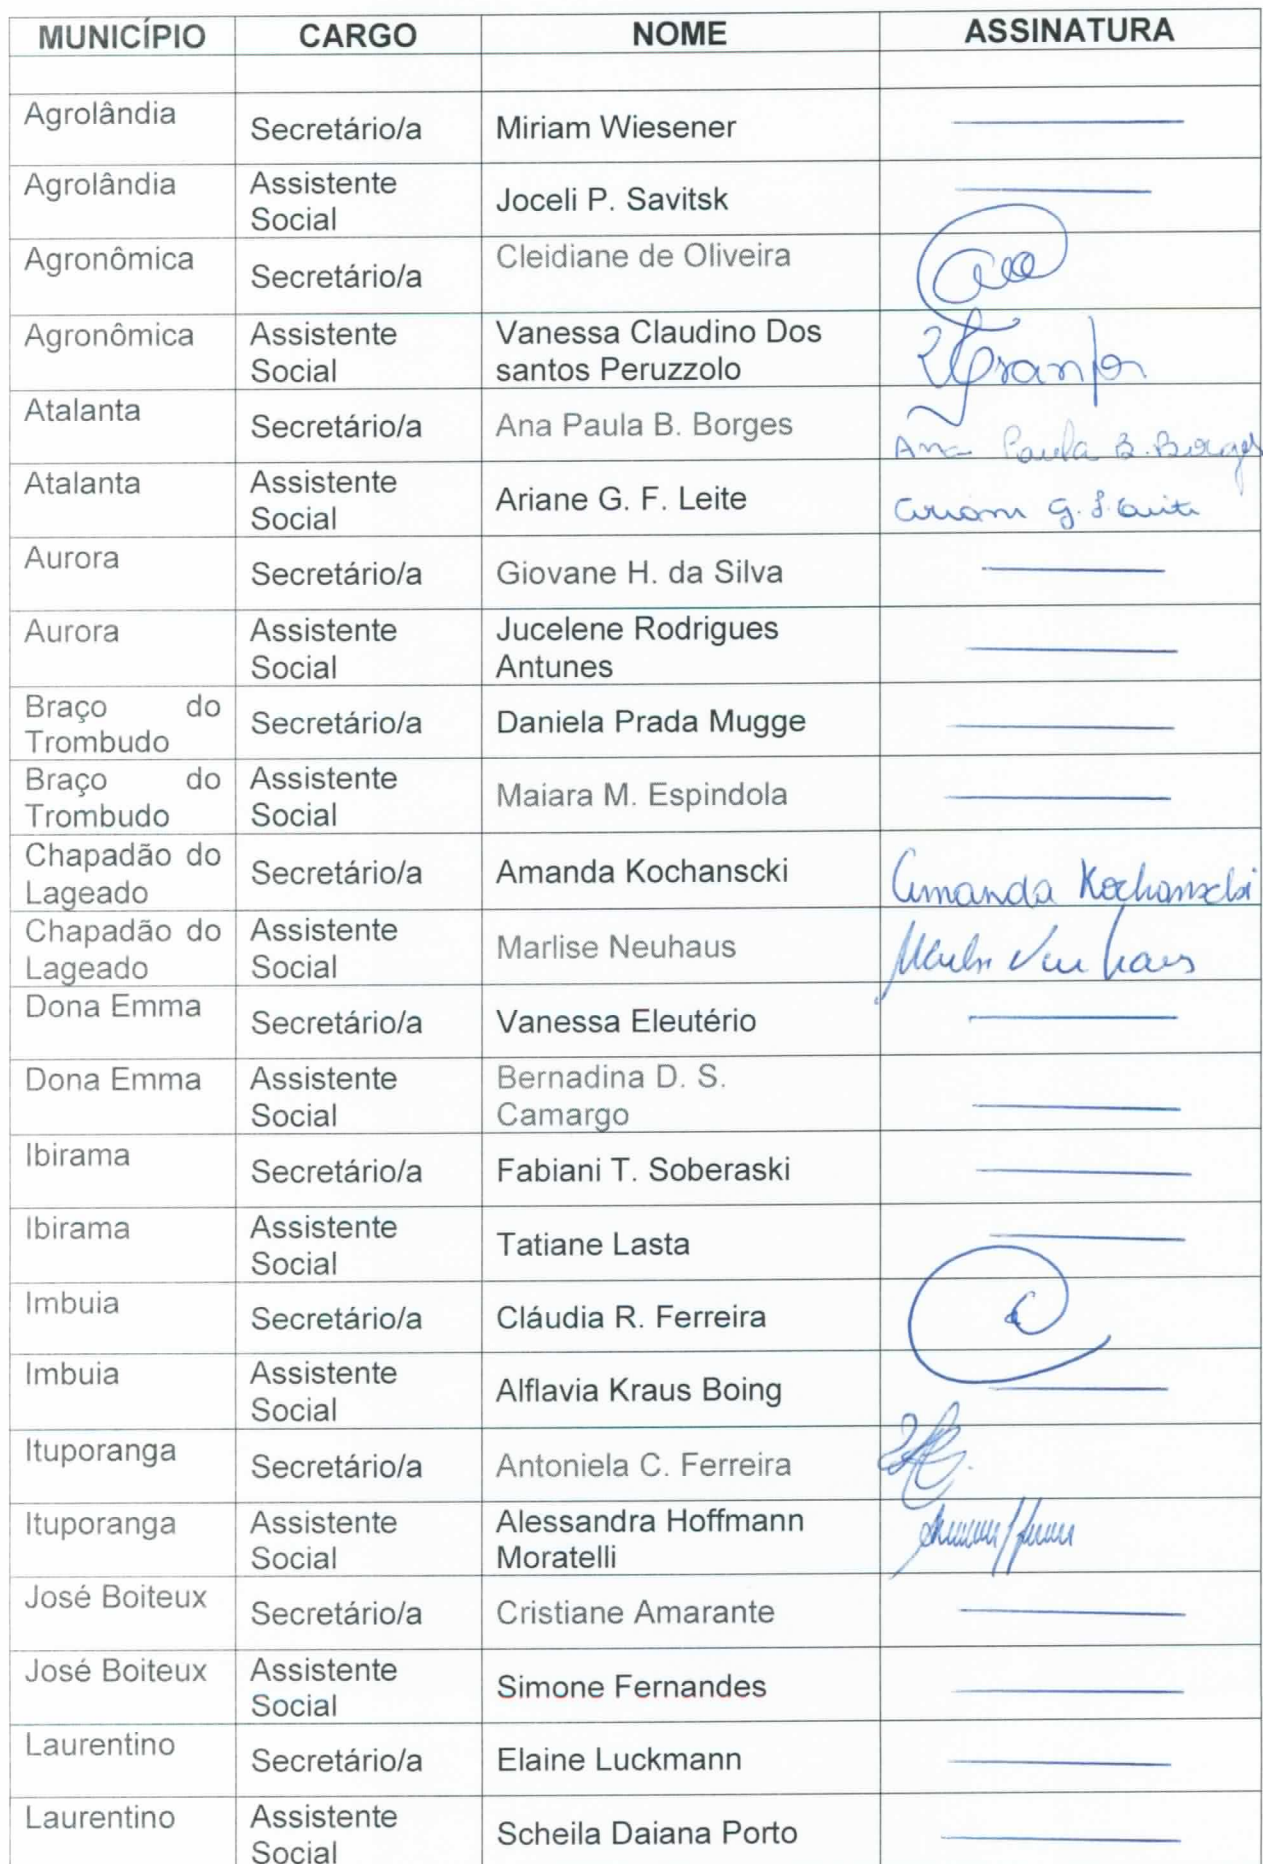 MUNICÍPIO CARGO NOME ASSINATURA
Agrolândia Secretário/a Miriam Wiesener
Agrolândia Assistente Social Joceli P. Savitsk
Agronômica Secretário/a Cleidiane de Oliveira
Agronômica Assistente Social Vanessa Claudino Dos
santos Peruzzolo
Atalanta Secretário/a Ana Paula B. Borges Ana Paula B. Borges
Atalanta Assistente Social Ariane G. F. Leite Ariane G. F. Leite
Aurora Secretário/a Giovane H. da Silva
Aurora Assistente Social Jucelene Rodrigues
Antunes
Braço do Trombudo Secretário/a Daniela Prada Mugge
Braço do Trombudo Assistente Social Maiara M. Espindola
Chapadão do Lageado Secretário/a Amanda Kochanscki Amanda Kochanscki
Chapadão do Lageado Assistente Social Marlise Neuhaus Marlise Neuhaus
Dona Emma Secretário/a Vanessa Eleutério
Dona Emma Assistente Social Bernadina D. S.
Camargo
Ibirama Secretário/a Fabiani T. Soberaski
Ibirama Assistente Social Tatiane Lasta
Imbuia Secretário/a Cláudia R. Ferreira
Imbuia Assistente Social Alflavia Kraus Boing
Ituporanga Secretário/a Antoniela C. Ferreira
Ituporanga Assistente Social Alessandra Hoffmann
Moratelli
José Boiteux Secretário/a Cristiane Amarante
José Boiteux Assistente Social Simone Fernandes
Laurentino Secretário/a Elaine Luckmann
Laurentino Assistente Social Scheila Daiana Porto